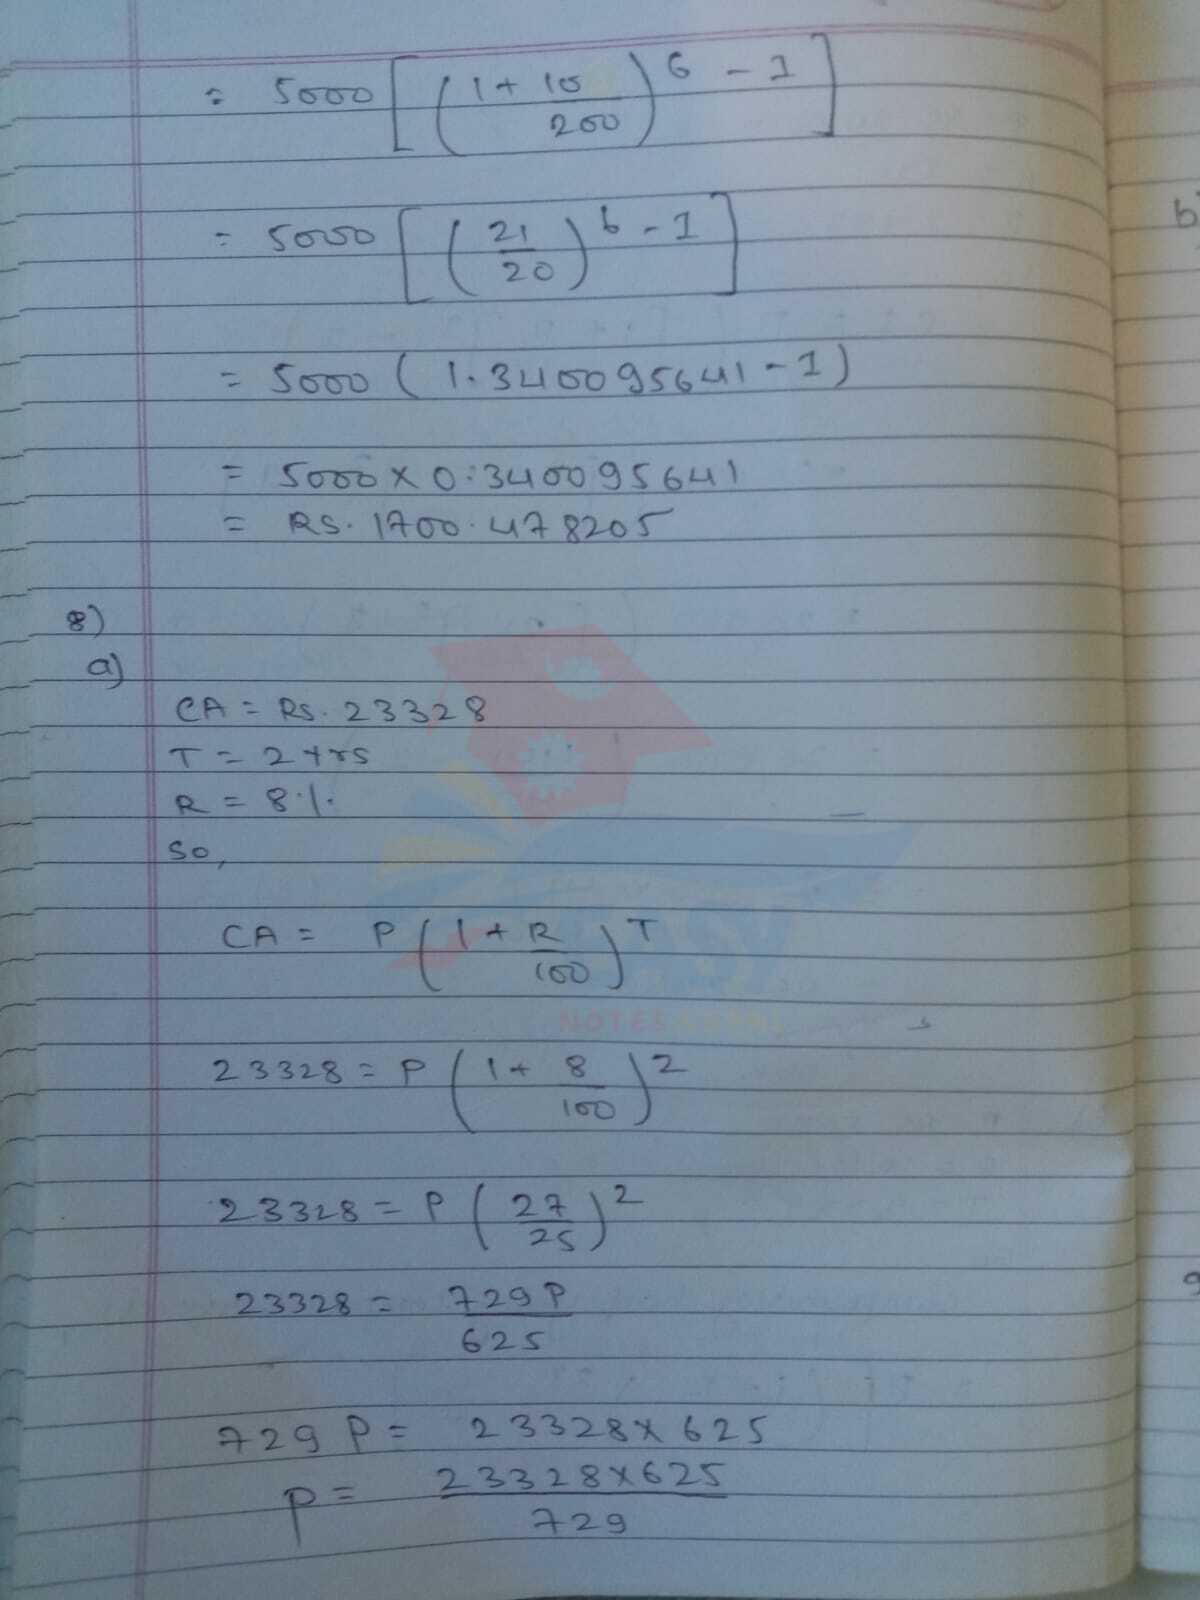 = 5000 [ ( 1 + 10/200 )^6 - 1 ]
= 5000 [ ( 21/20 )^6 - 1 ]
= 5000 ( 1.340095641 - 1 )
= 5000 × 0.340095641
= RS. 1700.478205
8)
a)
CA = RS. 23328
T = 2 yrs
R = 8%
so,
CA = P ( 1 + R/100 )^T
23328 = P ( 1 + 8/100 )^2
23328 = P ( 27/25 )^2
23328 = 729P/625
729 P = 23328 × 625
P = 23328×625/729
b)
9
NOTES